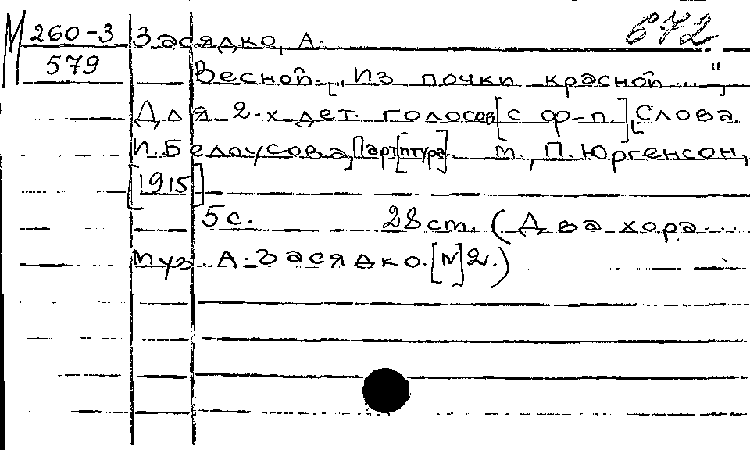 М 260-3 Засядко, А. 672
579 Весной. „Из почки красной ...",
Для 2-х дет. голосов [с ф-п.], Слова
И. Белоусова, Парт[итура]. М., П. Юргенсон,
[1915]
5 с. 28 ст. (Два хора ...
муз. А. Засядко. [№] 2.)